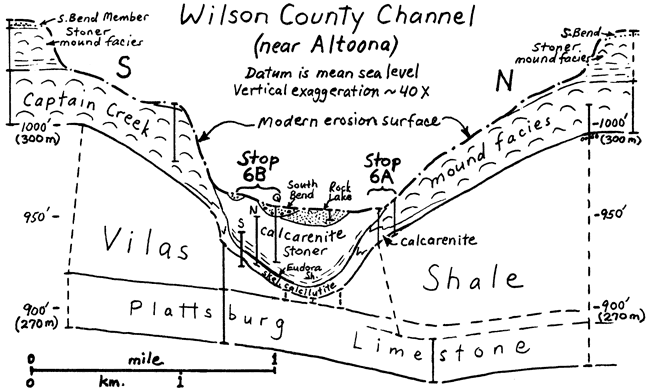 Wilson County Channel
(near Altoona)
Datum is mean sea level
Vertical exaggeration ~ 40 X
S. Bend Member
Stoner
mound facies
S
S. Bend
Stoner
mound facies
N
Captain Creek
Modern erosion surface
mound facies
1000'
(300 m)
1000'
(300 m)
Stop
6B
Stop
6A
Q
South
Bend
Rock
Lake
950'
950'
S
N
calcarenite
Stoner
Calcarenite
Vilas
Shale
Eudora
Sh.
skel. calcilutite
900'
(270 m)
900'
(270 m)
Plattsburg
Limestone
0
mile
1
0
km.
1